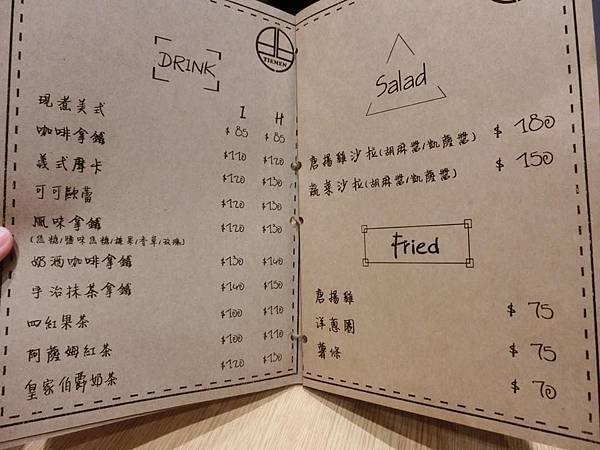 DRINK
TIEMEN
I H
現煮美式 $85 $85
咖啡拿鐵 $110 $120
義式摩卡 $120 $130
可可歐蕾 $120 $130
風味拿鐵 $120 $130
(焦糖/鹽味焦糖/榛果/香草/玫瑰)
奶酒咖啡拿鐵 $130 $140
宇治抹茶拿鐵 $140 $150
四紅果茶 $100 $110
阿薩姆紅茶 $100 $110
皇家伯爵奶茶 $120 $130
Salad
唐揚雞沙拉(胡麻醬/凱薩醬) $ 180
蔬菜沙拉(胡麻醬/凱薩醬) $ 150
Fried
唐揚雞 $ 75
洋蔥圈 $ 75
薯條 $ 70